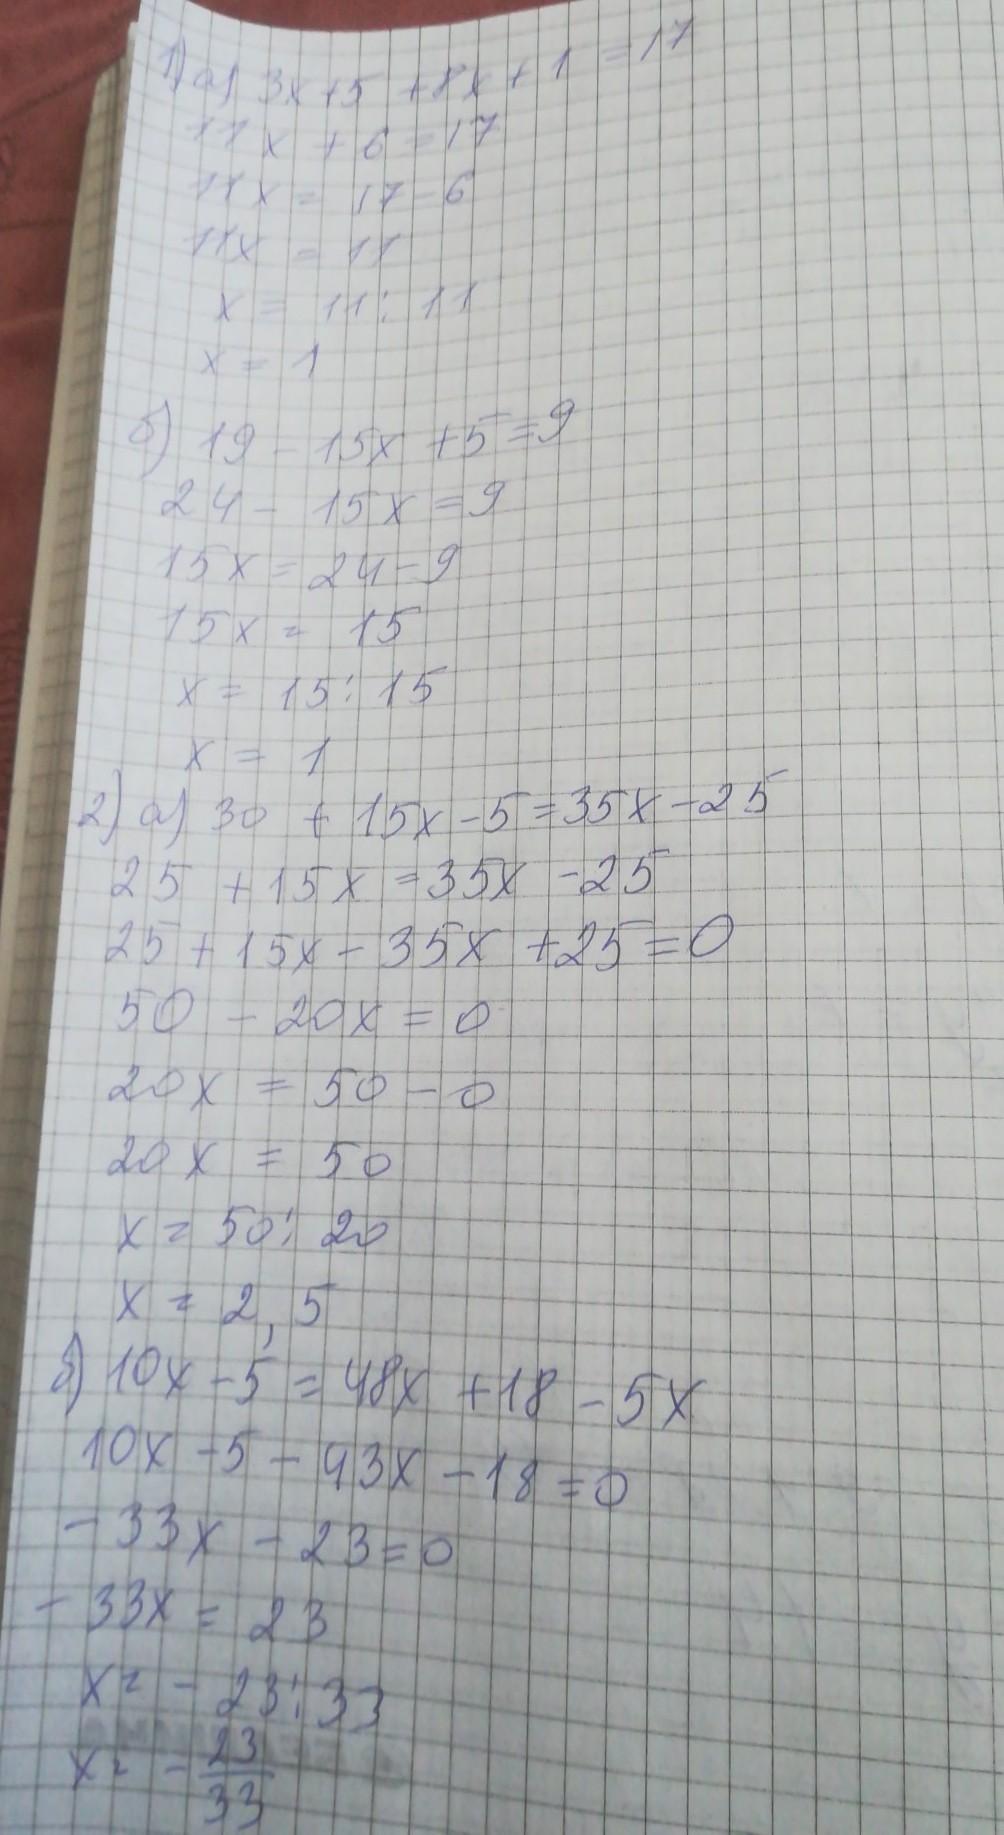 1) а) 3x+5 +8x+1 =17
11x +6 =17
11x = 17-6
11x = 11
x = 11:11
x = 1
б) 19 - 15x +5=9
24 - 15x =9
15x = 24-9
15x = 15
x = 15:15
x = 1
2) а) 30 + 15x-5=35x-25
25 +15x =35x -25
25+15x- 35x +25=0
50 - 20x = 0
20x = 50 - 0
20x = 50
x = 50:20
x = 2,5
б) 10x-5 = 48x +18 -5x
10x -5 - 43x -18=0
-33x - 23=0
-33x = 23
x= - 23:33
x= - 23/33